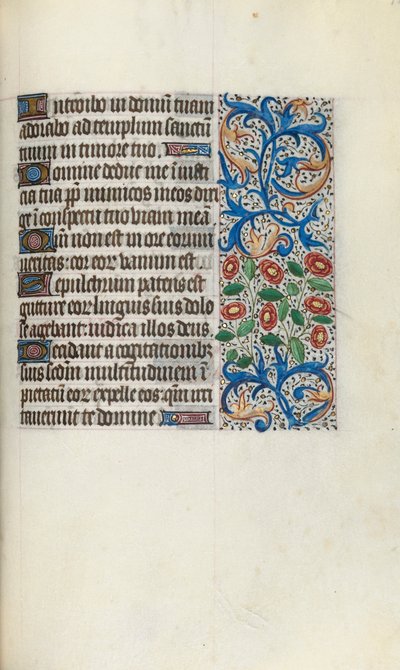 Introibo in domũ tuam
adorabo ad templum sanctũ
tuum in timore tuo.
Domine deduc me ĩ iusti
cia tua pp̃ inimicos meos diri
ge ĩ conspectu tuo viam meã
Qm̃ non est in ore eorum
veritas: cor eor vanum est
Sepulchrum patens est
guttur eor linguis suis dolo
se agebant: iudica illos deus
Decidant a cogitationibz
suis scd̃m multitudinem ĩ
pietatũ eor expelle eos: qm̃ irri
taverunt te domine